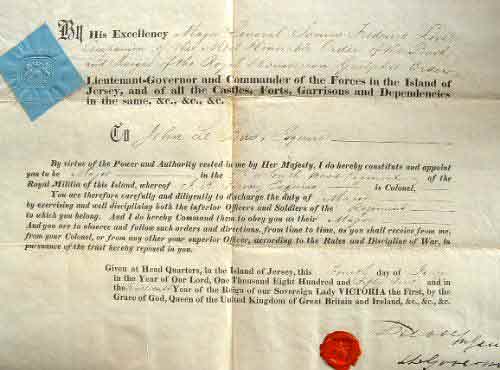 By His Excellency Major General James Frederick Love
Companion of the Most Honorable Order of the Bath
and Knight of the Royal Hanoverian Guelphic Order
Lieutenant-Governor and Commander of the Forces in the Island of
Jersey, and of all the Castles, Forts, Garrisons and Dependencies
in the same, &c., &c., &c.
To John Le Esquire
By virtue of the Power and Authority vested in me by Her Majesty, I do hereby constitute and appoint
you to be Major in the Regiment of the
Royal Militia of this Island, whereof Esquire is Colonel.
You are therefore carefully and diligently to discharge the duty of Major
by exercising and well disciplining both the inferior Officers and Soldiers of the Regiment
to which you belong. And I do hereby Command them to obey you as their Major
And you are to observe and follow such orders and directions, from time to time, as you shall receive from me,
from your Colonel, or from any other your superior Officer, according to the Rules and Discipline of War, in
pursuance of the trust hereby reposed in you.
Given at Head Quarters, in the Island of Jersey, this day of
in the Year of our Lord, One Thousand Eight Hundred and Fifty and in
the Year of the Reign of our Sovereign Lady VICTORIA the First, by the
Grace of God, Queen of the United Kingdom of Great Britain and Ireland, &c., &c., &c.